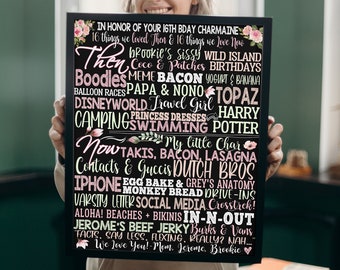 IN HONOR OF YOUR 16TH BDAY CHARMAINE
16 things we loved Then & 16 things we love Now
Then
Brookie's Sissy
WILD ISLAND
BIRTHDAYS
Coco & Patches
Boodles
MEME BACON
YOGURT & BANANA
BALLOON RACES
PAPA & NONO
TOPAZ
DISNEYWORLD
Travel Girl
HARRY
POTTER
CAMPING
PRINCESS DRESSES
SWIMMING
Now
My Little Char
TAKIS, BACON, LASAGNA
Contacts & Guccis
DUTCH BROS
IPHONE
EGG BAKE &
MONKEY BREAD
GREY'S ANATOMY
DRIVE-INS
VARSITY LETTER
SOCIAL MEDIA
Crosstrek!
ALOHA! BEACHES + BIKINIS
IN-N-OUT
JEROME'S BEEF JERKY
Burks & Vans
FACTS, SAY LESS, FLIXING, REALLY? NAH...
We Love You! -Mom, Jerome, Brookie